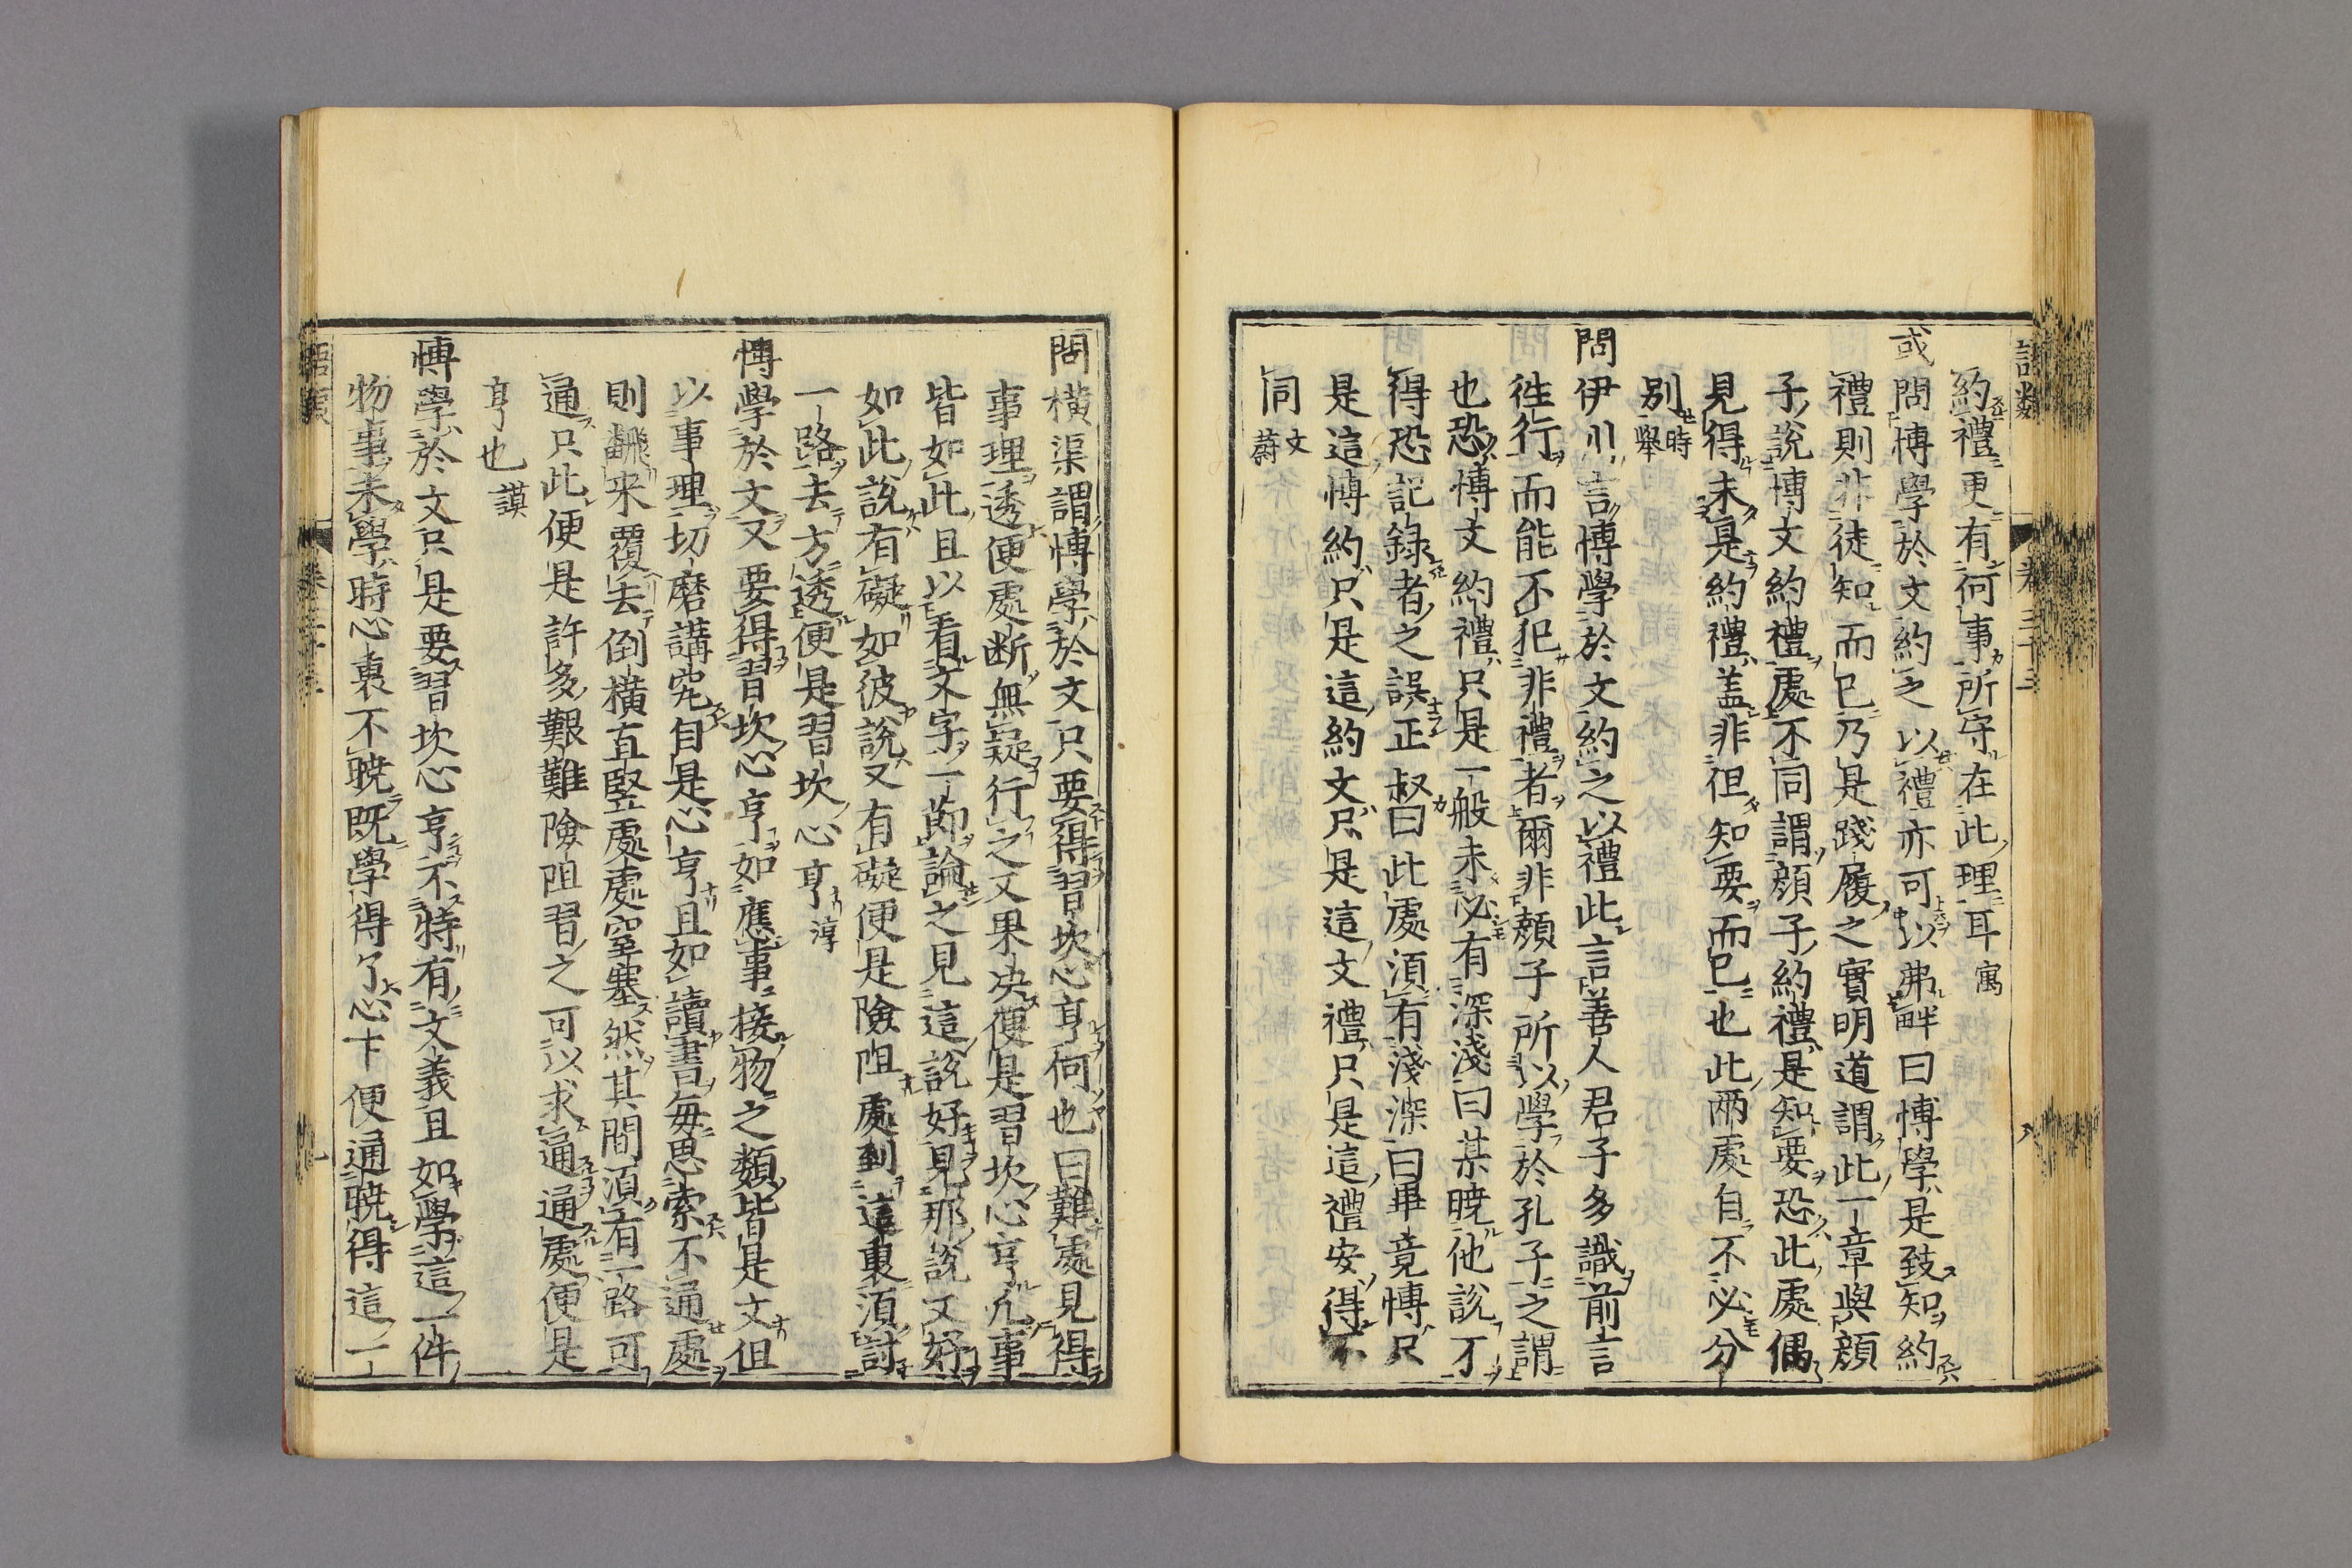 約禮更有何事所守在此理耳寓
或問博學於文約之以禮亦可以弗畔曰博學是致知約
禮則非徒知而已乃是踐履之實明道謂此一章與顏
子說博文約禮處不同謂顏子約禮是知要恐此處偶
見得未是約禮蓋非但知要而已也此兩處自不必分
別時舉
問伊川言博學於文約之以禮此言善人君子多識前言
徃行而能不犯非禮者爾非顏子所以學於孔子之謂
也恐博文約禮只是一般未必有深淺曰某曉他說才
得恐記錄者之誤正叔曰此處須有淺深曰畢竟博只
是這博約只是這約文只是這文禮只是這禮安得不
同文蔚
問橫渠謂博學於文只要得習坎心亨何也曰難處見得
事理透便處断無疑行之又果决便是習坎心亨凡事
皆如此且以看文字一節論之見這說好見那說又好
如此說有礙如彼說又有礙便是險阻處到這裏須討
一路去方透便是習坎心亨淳
博學於文又要得習坎心亨如應事接物之類皆是文但
以事理切磨講究自是心亨且如讀書每思索不通處
則翻来覆去倒橫直竪處處窒塞然其間須有一路可
通只此便是許多艱難險阻習之可以求通通處便是
亨也謨
博學於文只是要習坎心亨不特有文義且如學這一件
物事未學時心裏不曉既學得了心下便通曉得這一